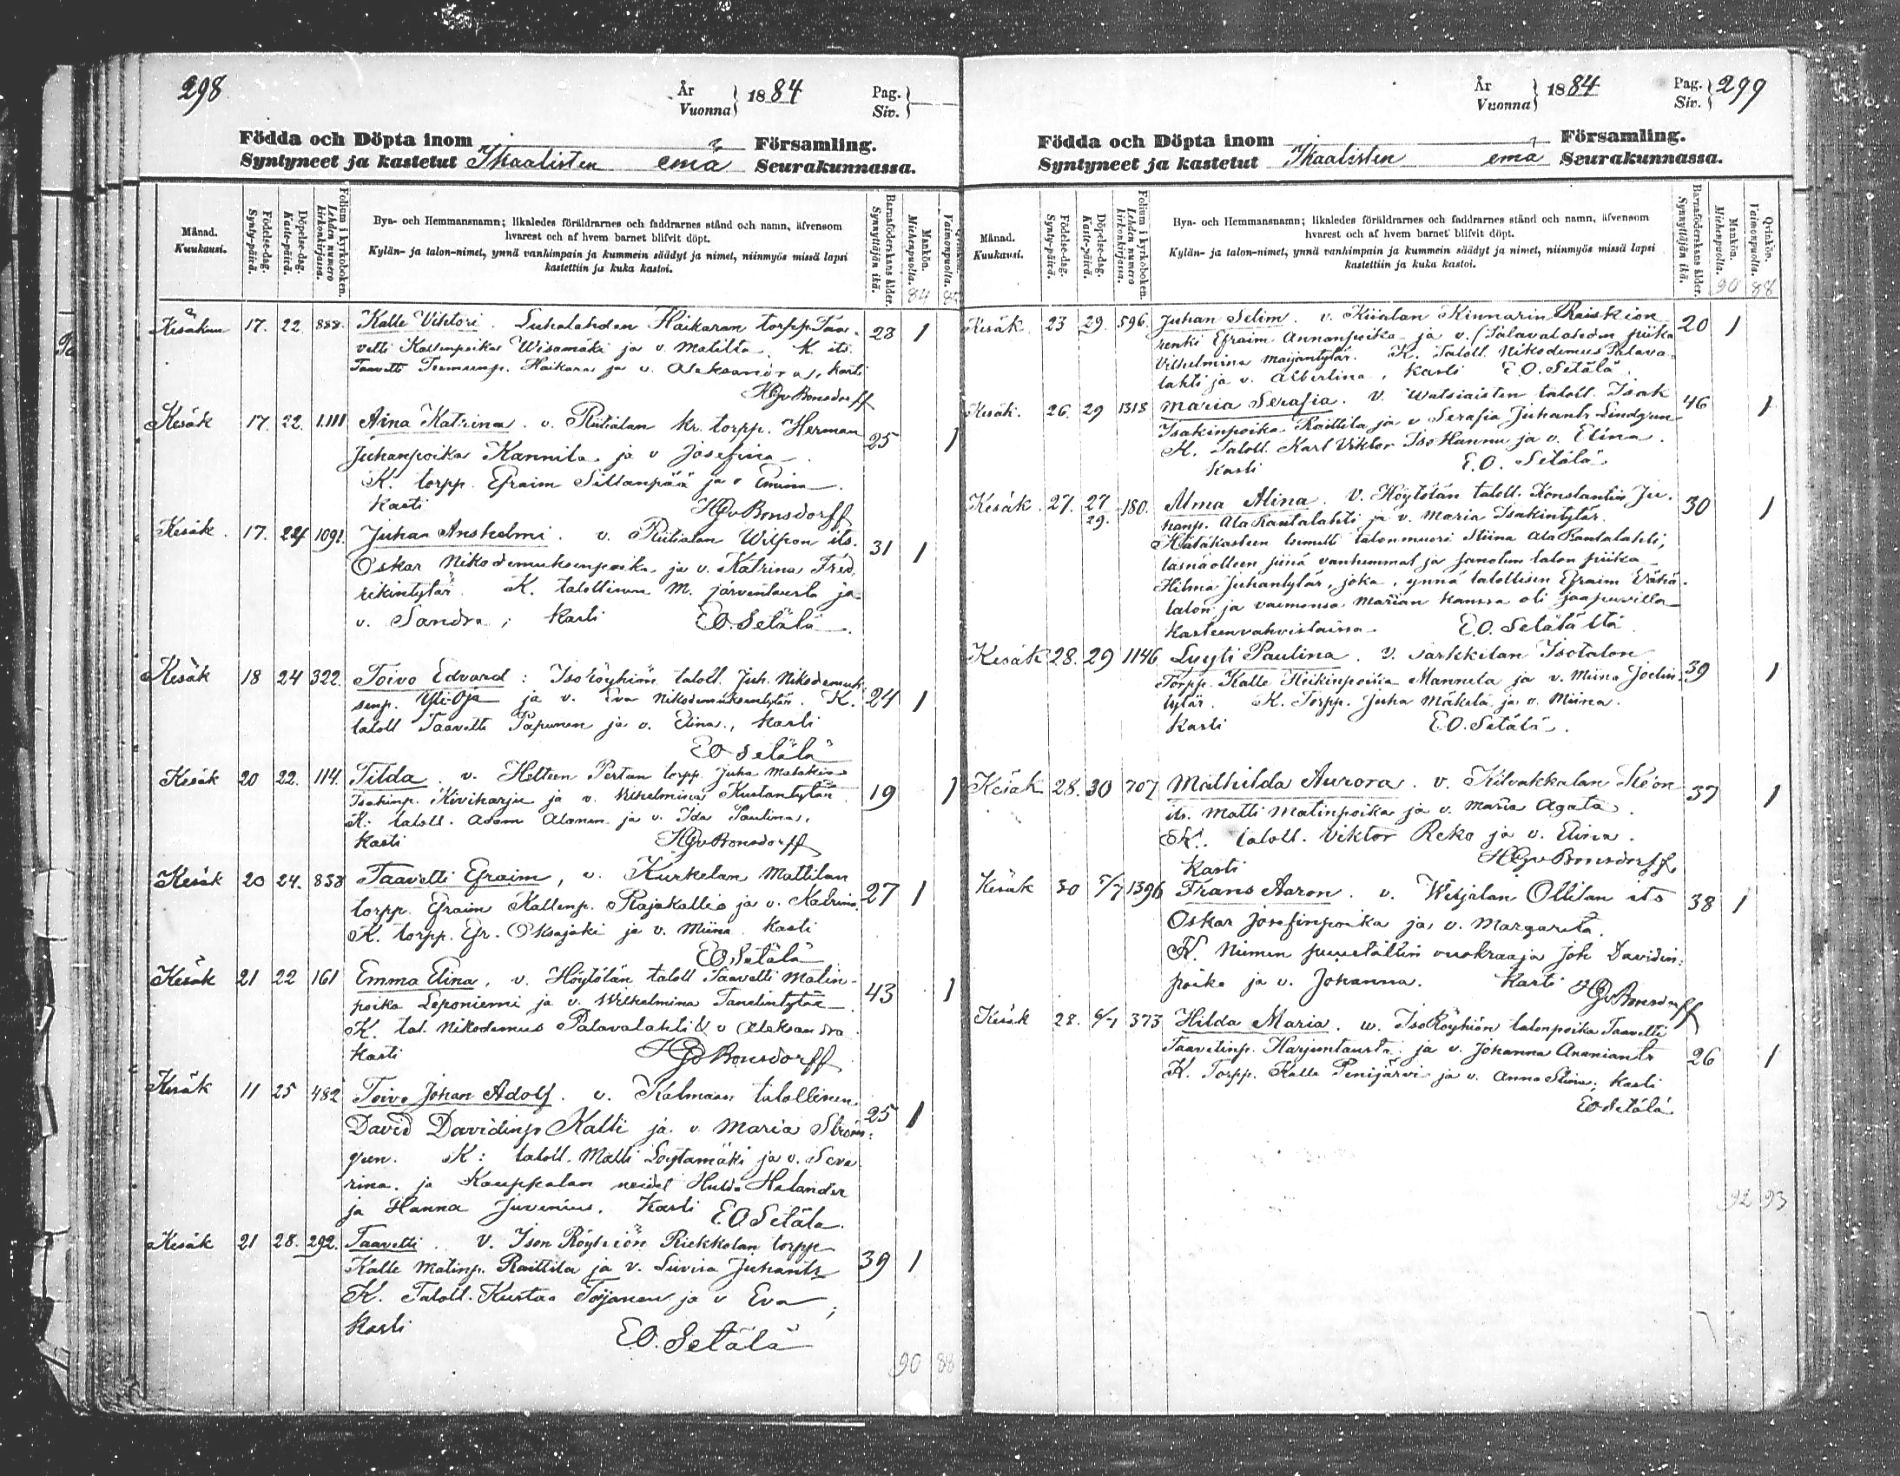 298
År
Vuonna
1884
Pag.
Siv.
Födda och Döpta inom
Församling.
Syntyneet ja kastetut Ikaalisten emä Seurakunnassa.
Månad.
Kuukausi.
Födelse-dag.
Synty-päivä.
Döpelse-dag.
Kaste-päivä.
Folium i kyrkoboken.
Lehden numero kirkonkirjassa.
Bya- och Hemmansnamn; likaledes föräldrarnes och faddrarnes stånd och namn, äfvensom
hvarest och af hvem barnet blifvit döpt.
Kylän- ja talon-nimet, ynnä vanhimpain ja kummein säädyt ja nimet, niinmyös missä lapsi
kastettiin ja kuka kastoi.
Barnaföderskans ålder.
Synnyttäjän ikä.
Mankön.
Miehenpuolta.
Qvinkön.
Vaimonpuolta.
84
Kesäkuu 17. 22. 888. Kalle Viktori. Luhalahden Haikaran torpp. Taa- 23 1
vetti Kallenpoika Wisamäki ja v. Matilta. K. its.
Taavetti Haikara ja v. Aleksandra, kasti
HGvBonsdorff
Kesäk 17. 22. 1.111 Aina Katrina. v. Riitialan kr. torpp. Herman 25 1
Juhanpoika Kannila ja v Josefina
K. torpp. Efraim Sillanpää ja v Emma
Kasti HGvBonsdorff
Kesäk 17. 24 1091. Juhan Anshelmi. v. Riitialan Wilpon its. 31 1
Oskar Nikodemuksenpoika ja v. Katrina Fred
rikintytär. K. talollinen M. Järventausta ja
v. Sandra; kasti E.O. Setälä.
Kesäk 18 24 322. Toivo Edvard: Isoröyhiön taloll. Juh. Nikodemuk- 24 1
senp. Yli-Oja ja v. Eva Nikodemuksentytär. K.
taloll Taavetti Papunen ja v. Elina, kasti
EO Setälä
Kesäk 20 22. 114. Tilda. v. Heltten Pertun torpp. Juha Malakias 19 1
Isakinp. Kiviharju ja v. Wilhelmina Kustantytär.
K: taloll. Adam Alanen ja v. Ida Paulina,
Kasti HGvBonsdorff
Kesäk 20 24. 838 Taavetti Efraim, v. Kurkelan Mattilan 27 1
torpp. Efraim Kallenp. Rajakallio ja v. Katrina.
K. torpp. Efr. Oksajäki ja v. Miina. kasti
EO Setälä
Kesäk 21 22 161 Emma Elina, v. Höytölän taloll Taavetti Matin- 43 1
poika Leponiemi ja v. Wilhelmina Tanelintytär
K. tal. Nikodemus Palavalahti & v Aleksandra.
Kasti HGvBonsdorff
Kesäk 11 25 482 Toivo Johan Adolf. v. Kalmaan talollinen 25 1
David Davidinp. Kalli ja v. Maria Ström-
gren. K: taloll. Matti Löytämäki ja v. Seve
rina. ja Kauppalan neidet Hulda Helander
ja Hanna Juvenius. Kasti E O Setälä.
Kesäk 21 28. 292. Taavetti. V. Ison Röyhiön Riekkolan torpp. 39 1
Kalle Matinp. Raittila ja v. Liivisa Juhantr
K. Taloll. Kustaa Töijänen ja v Eva,
kasti E.O. Setälä
90 88
År
Vuonna
1884
Pag.
Siv.
299
Födda och Döpta inom
Församling.
Syntyneet ja kastetut Ikaalisten emä Seurakunnassa.
Månad.
Kuukausi.
Födelse-dag.
Synty-päivä.
Döpelse-dag.
Kaste-päivä.
Folium i kyrkoboken.
Lehden numero kirkonkirjassa.
Bya- och Hemmansnamn; likaledes föräldrarnes och faddrarnes stånd och namn, äfvensom
hvarest och af hvem barnet blifvit döpt.
Kylän- ja talon-nimet, ynnä vanhimpain ja kummein säädyt ja nimet, niinmyös missä lapsi
kastettiin ja kuka kastoi.
Barnaföderskans ålder.
Synnyttäjän ikä.
Mankön.
Miehenpuolta.
Qvinkön.
Vaimonpuolta.
90 88
Kesäk. 23 29. 596. Juhan Selim. v. Kiialan Kinnarin Räiskiön 20 1
renki Efraim Annanpoika ja v. Palavalahden piika
Vilhelmina Maijantytär. K. Taloll. Nikodemus Palava-
lahti ja v. Albertina, kasti E.O. Setälä.
Kesäk. 26. 29 1318 Maria Serafia. v. Watsiaisten taloll. Isak 46 1
Isakinpoika Raittila ja v. Serafia Juhantr. Lindgren
K. Taloll. Karl Viktor IsoHannu ja v. Elina.
kasti E.O. Setälä
Kesäk. 27. 27 180. Alma Alina. V. Höytölän taloll. Konstantin Ju- 30 1
29. hanp. AlaRantalahti ja v. Maria Isakintytär.
Hätäkasteen toimitti talonmuori Stiina AlaRantalahti,
läsnäolleen siinä vanhemmat ja Janolan talon piika
Hilma Juhantytär, joka, ynnä talollisen Efraim Erähä-
talon ja vaimonsa Marian kanssa oli saapuvilla
kasteenvahvistaissa. E.O. Setälältä.
Kesäk 28. 29 1146 Lyyti Paulina. V. Sarkkilan Isotalon 39 1
Torpp. Kalle Heikinpoika Mannela ja v. Miina Joelin
tytär. K. Torpp. Juha Mäkelä ja v. Miina.
Kasti E.O. Setälä.
Kesäk 28. 30 707 Mathilda Aurora. v. Kilvakkalan Iteon 37 1
its. Matti Matinpoika ja v. Maria Agata.
K. taloll. Viktor Reko ja v. Elina.
Kasti HGvBonsdorff
Kesäk 30 5/7 1396 Frans Aaron. v. Wesajalan Ollilan its 38 1
Oskar Josefinpoika ja v. Margareta.
K. Niemen puustellin vuokraaja Joh Davidin-
poika ja v. Johanna. kasti HGvBonsdorff
Kesäk 28. 6/7 373 Hilda Maria. w. IsoRöyhiön talonpoika Taavetti 26 1
Taavetinp. Harjuntausta ja v. Johanna Ananiantr
K. Torpp. Kalle Penijärvi ja v. Anna Stiina. kasti
EO Setälä
92 93